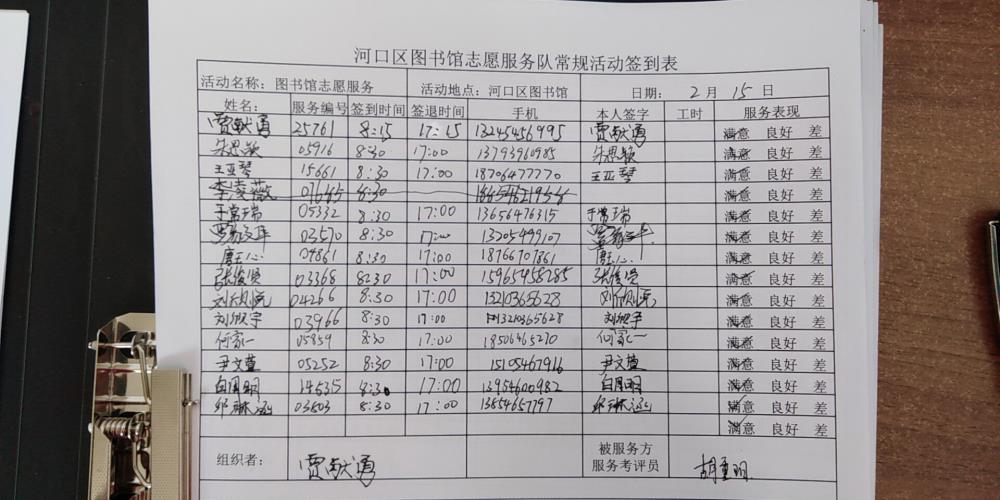 河口区图书馆志愿服务队常规活动签到表
活动名称: 图书馆志愿服务 活动地点: 河口区图书馆 日期: 2 月 15 日
姓名: 服务编号 签到时间 签退时间 手机 本人签字 工时 服务表现
贾献勇 25761 8:15 17:15 13245456995 贾献勇 满意 良好 差
朱思颖 05916 8:30 17:00 13793960985 朱思颖 满意 良好 差
王亚琴 15661 8:30 17:00 18706477770 王亚琴 满意 良好 差
李凌薇 07645 8:30 满意 良好 差
于常瑞 05332 8:30 17:00 13656476315 于常瑞 满意 良好 差
03570 8:30 17:00 13205499107 满意 良好 差
唐心 04861 8:30 17:00 18766701861 唐心 满意 良好 差
张俊贤 03368 8:30 17:00 15965458285 张俊贤 满意 良好 差
04266 8:30 17:00 13210365628 满意 良好 差
刘欣宇 03966 8:30 17:00 13210365628 刘欣宇 满意 良好 差
何家一 05859 8:30 17:00 18506465270 何家一 满意 良好 差
尹文萱 05252 8:30 17:00 15105467916 尹文萱 满意 良好 差
14535 8:30 17:00 13954600982 满意 良好 差
03603 8:30 17:00 13854657797 满意 良好 差
满意 良好 差
组织者: 贾献勇 被服务方
服务考评员